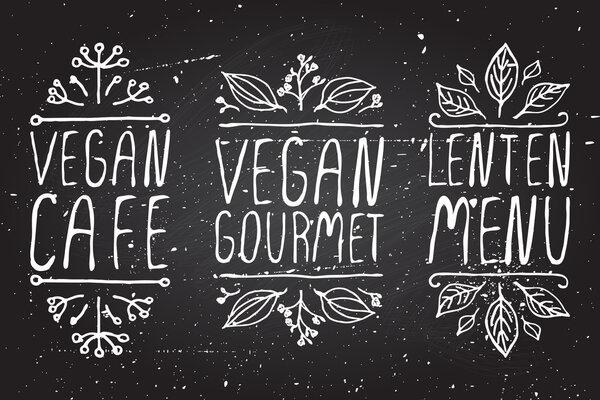 VEGAN
CAFE
VEGAN
GOURMET
LENTEN
MENU